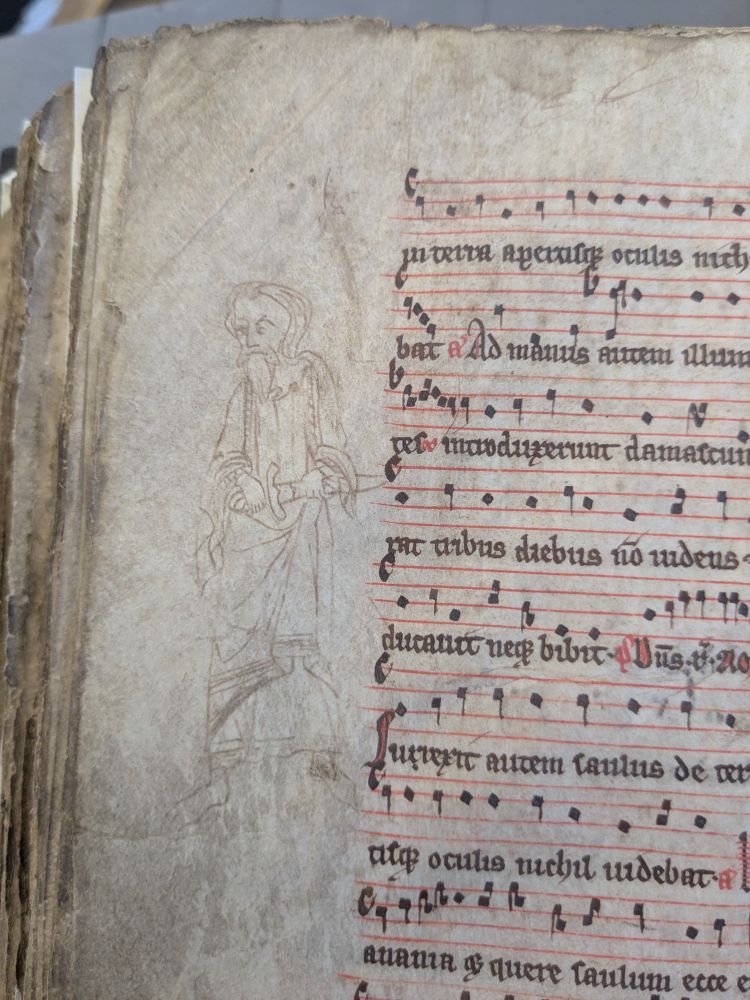 in terra apertisq oculis nich
bat Ad manus autem illum
tes introduxerunt damascum
rat tribus diebus nō uidens
ducauit neqꝫ bibit
Surrexit autem saulus de ter
tisqꝫ oculis nichil uidebat
anania quere saulum ecce e